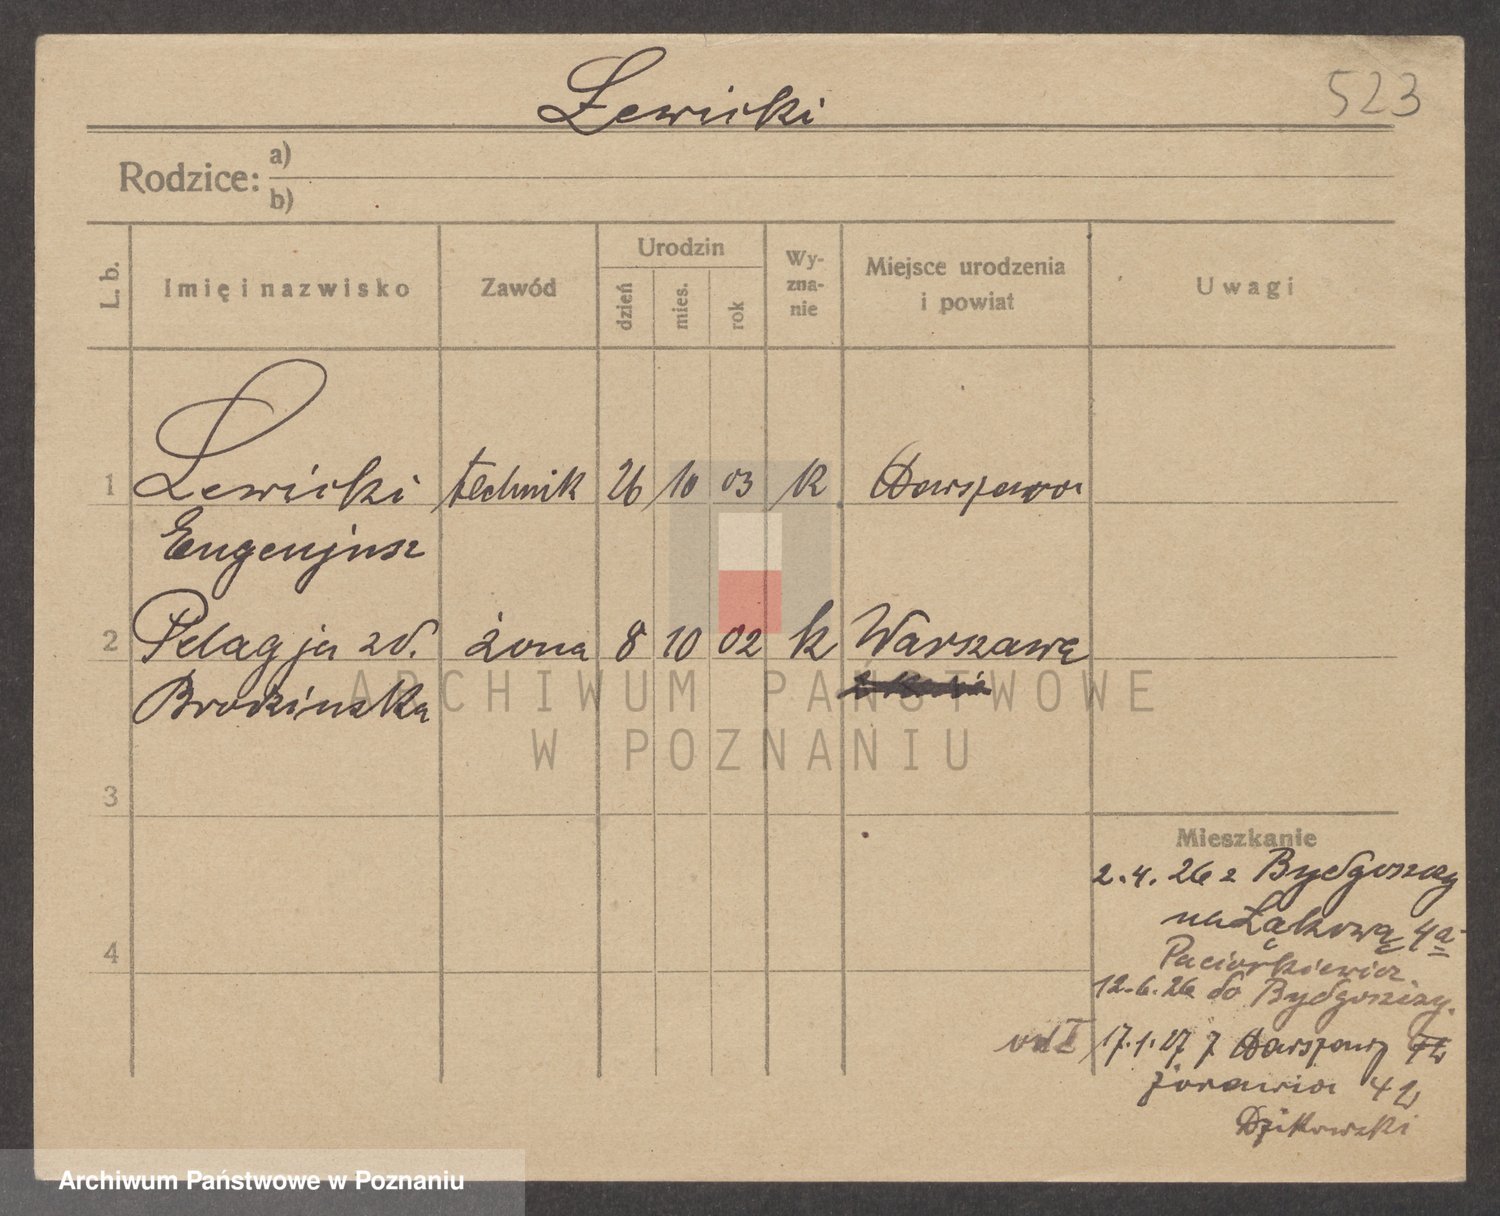 Lewicki
523
Rodzice: a)
b)
L. b. Imię i nazwisko Zawód Urodzin dzień mies. rok Wy-zna-nie Miejsce urodzenia i powiat Uwagi
1 Lewicki technik 26 10 03 k Warszawa
Eugenjusz
2 Pelagja zd. żona 8 10 02 k Warszawa
Brodzinska
ARCHIWUM PAŃSTWOWE
W POZNANIU
3
Mieszkanie
2.4.26 z Bydgoszczy
na Łąkową 4a
4
Paciorkiewicz
12.6.26 do Bydgoszczy.
17.1.27 z Warszawy
Dzikowski
Archiwum Państwowe w Poznaniu